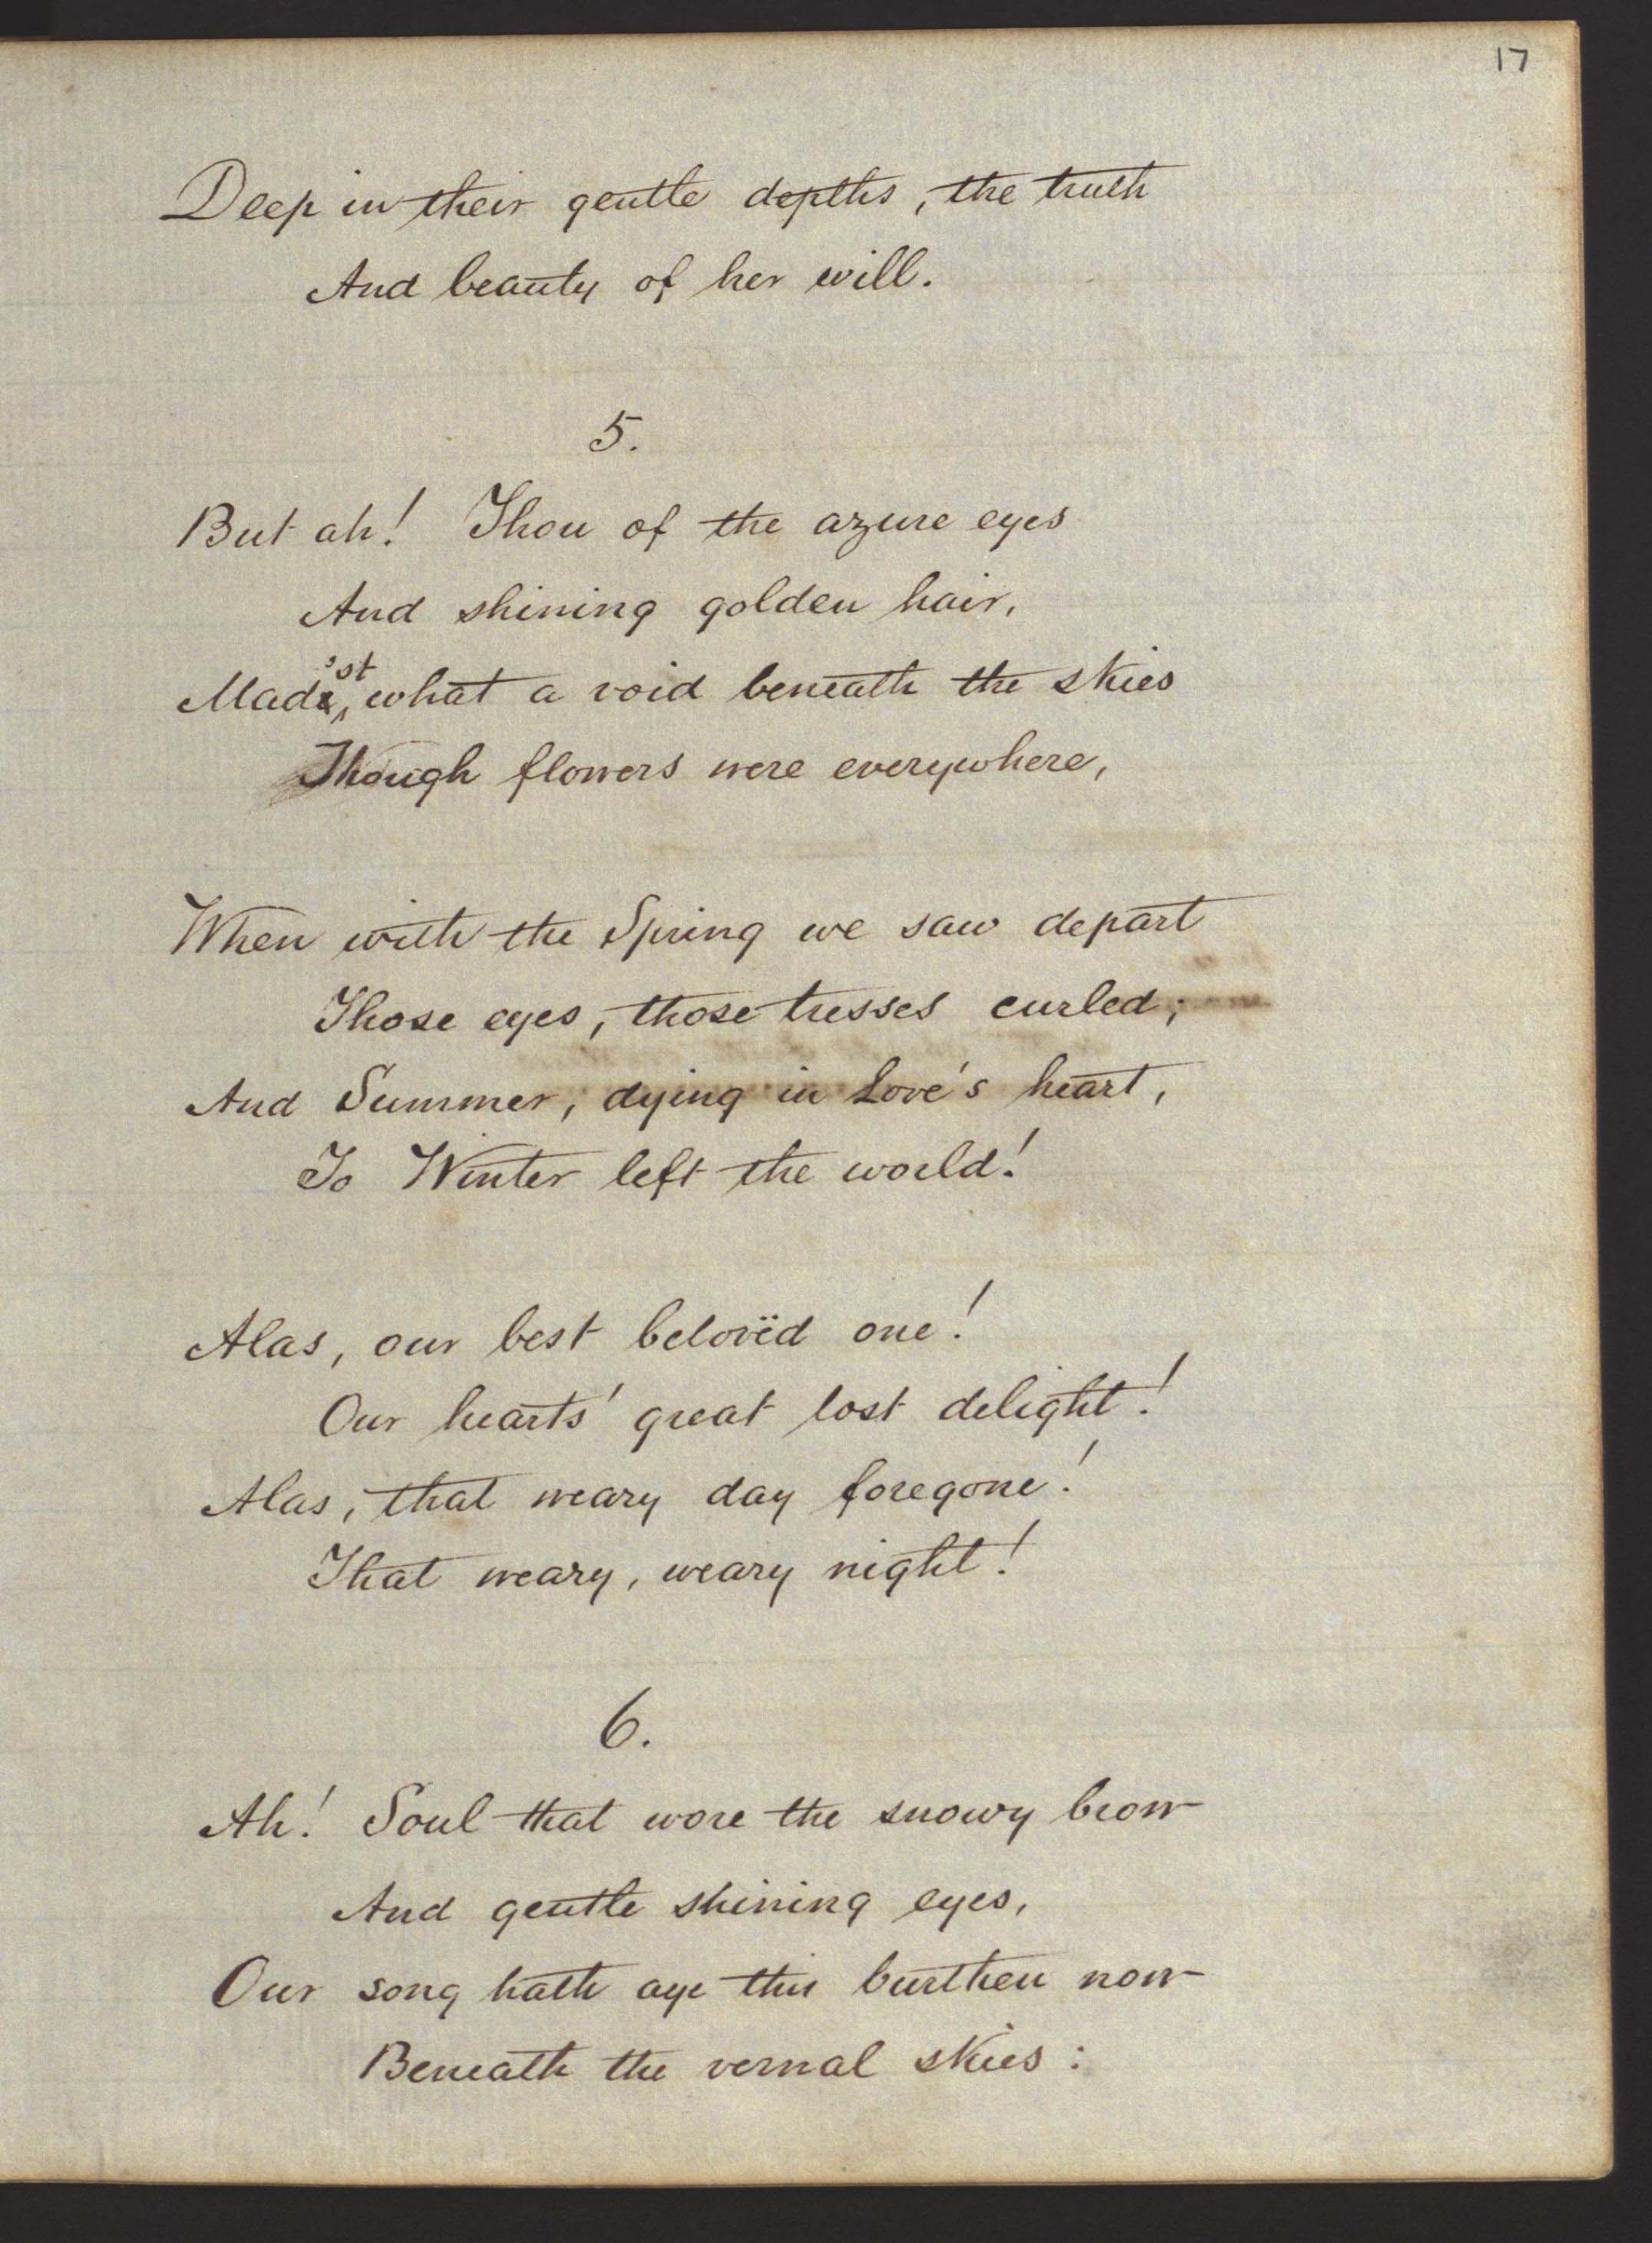 17
Deep in their gentle depths, the truth
And beauty of her will.
5.
But ah! Thou of the azure eyes
And shining golden hair,
Mad'st, what a void beneath the skies
Though flowers were everywhere,
When with the Spring we saw depart
Those eyes, those tresses curled;
And Summer, dying in Love's heart,
To Winter left the world!
Alas, our best belovëd one!
Our hearts' great lost delight!
Alas, that weary day foregone!
That weary, weary night!
6.
Ah! Soul that wore the snowy brow
And gentle shining eyes,
Our song hath aye this burthen now
Beneath the vernal skies: